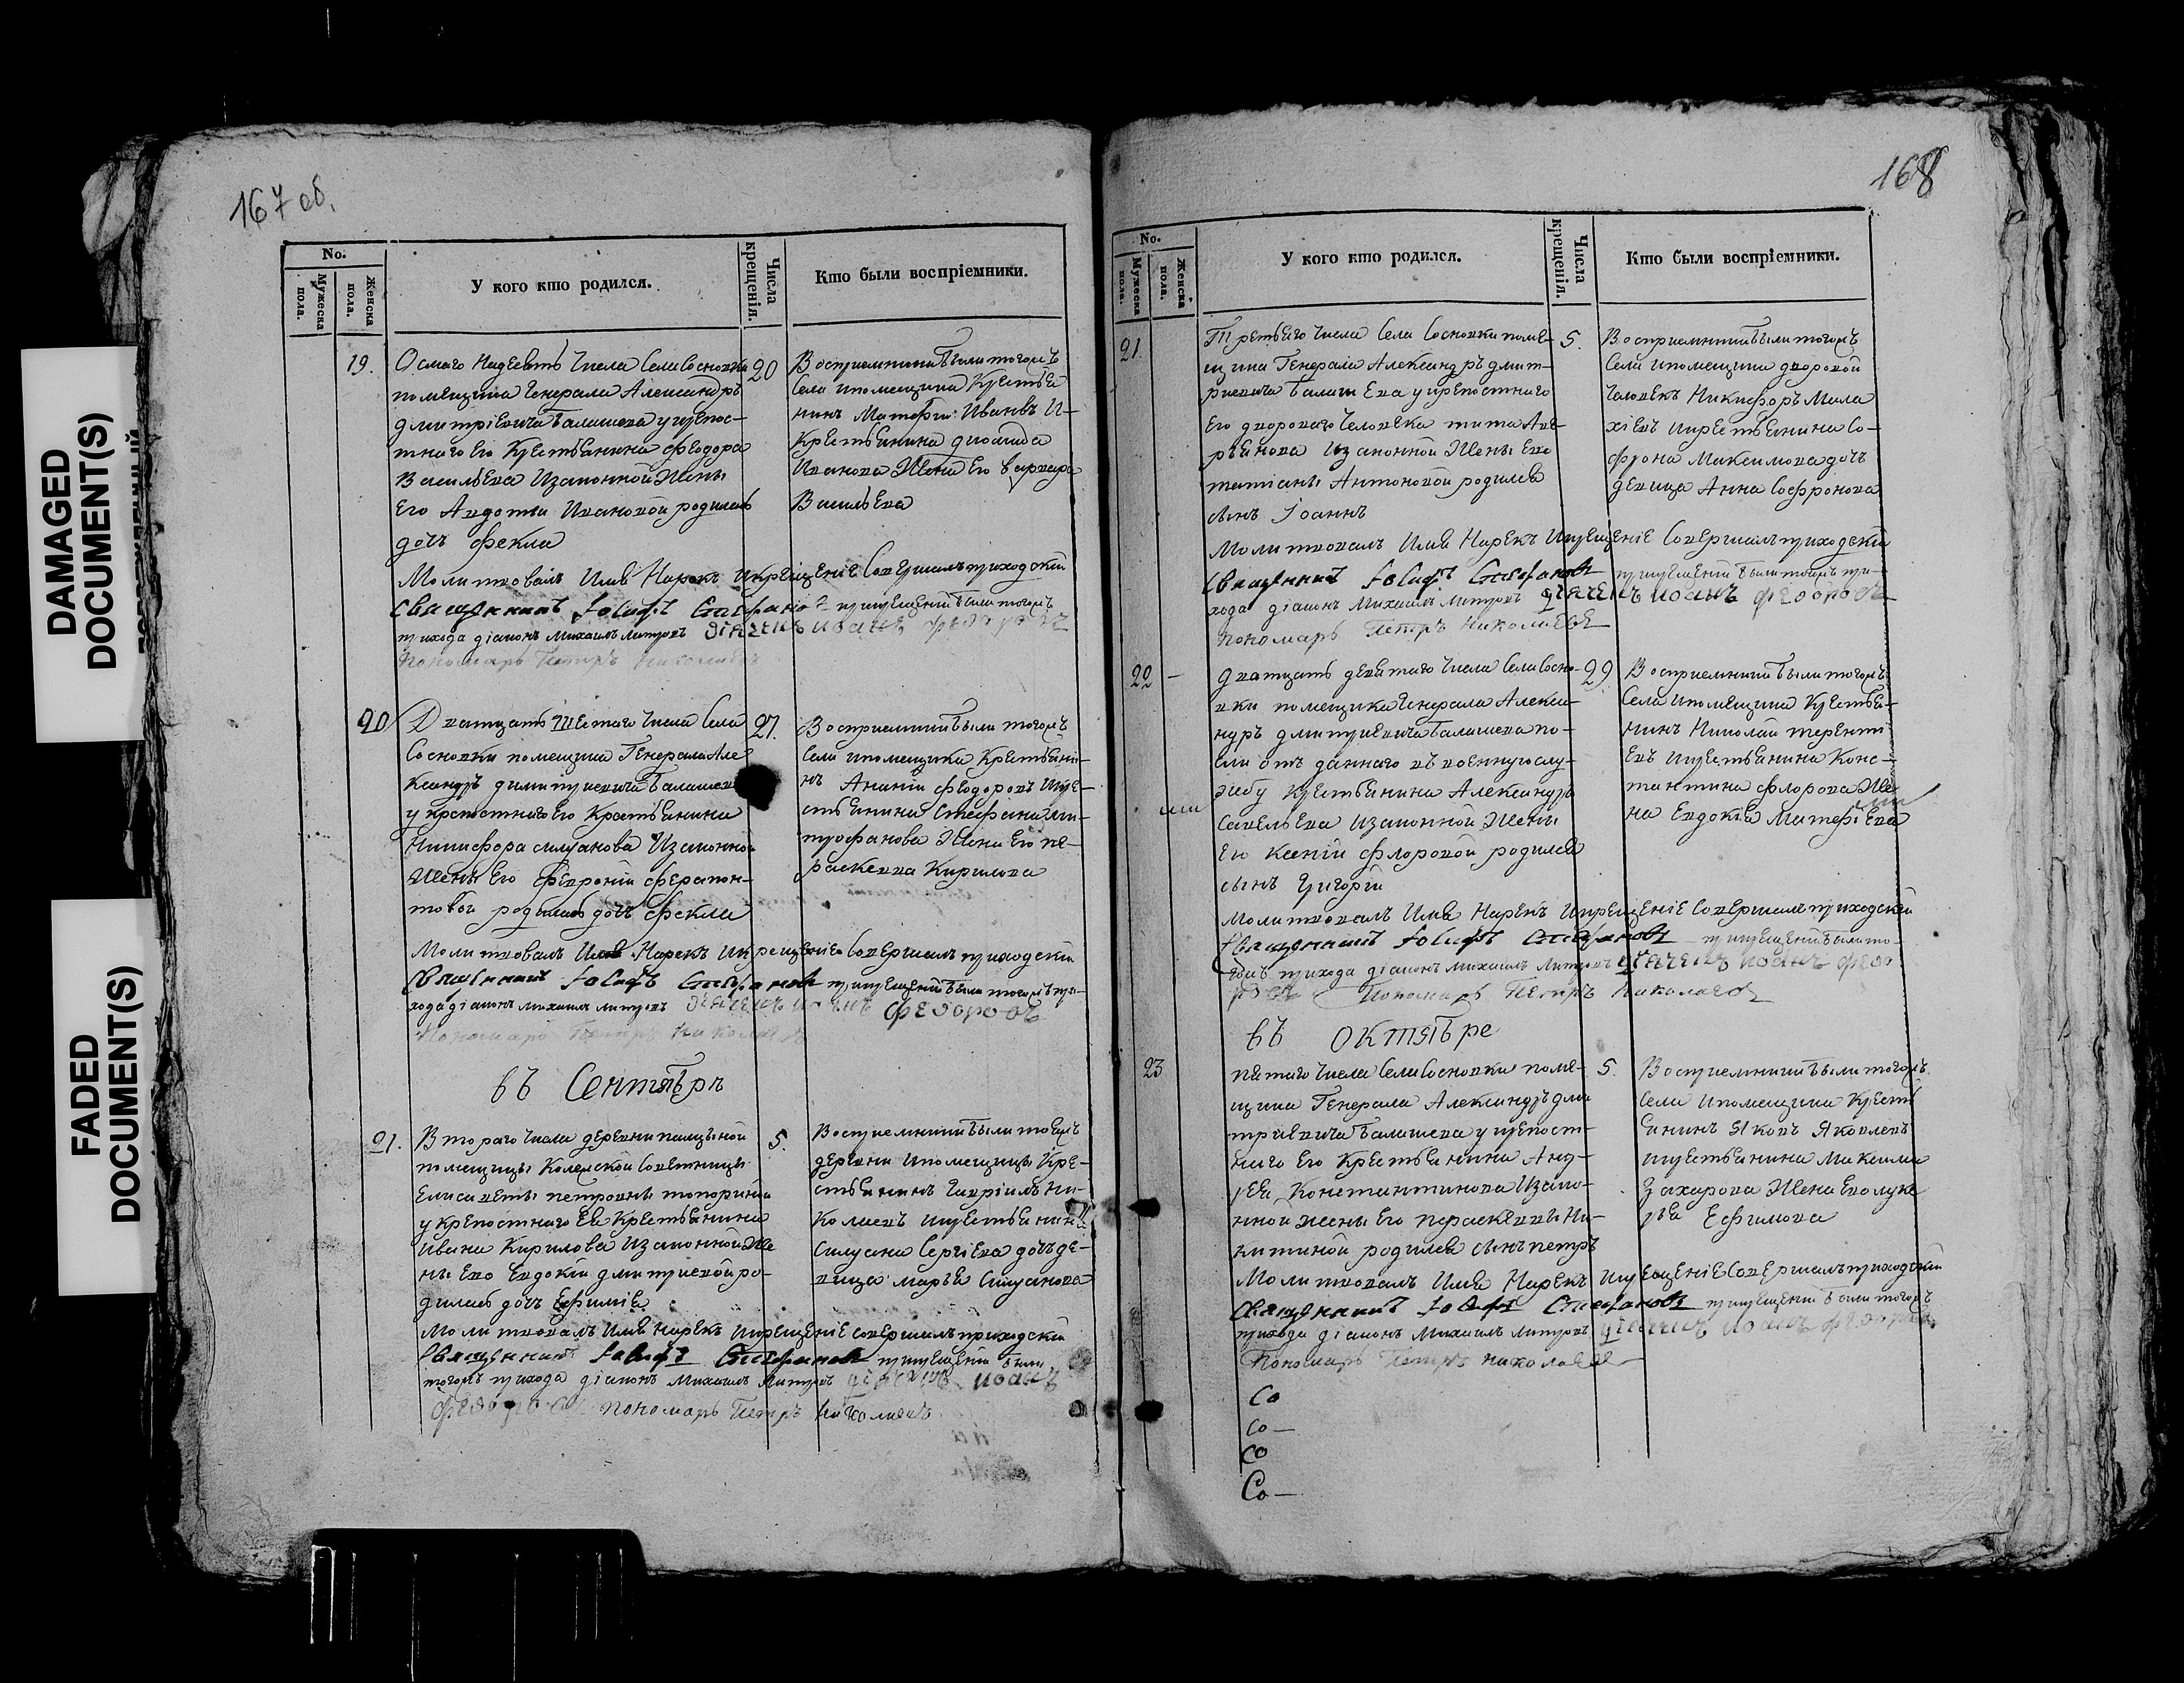 DAMAGED
DOCUMENT(S)
FADED
DOCUMENT(S)
167 об.
No.
Мужеска пола.
Женска пола.
У кого кто родился.
Числа крещенія.
Кто были воспріемники.
19.
Осмаго Надесеть Числа Села Сосновки
помещика Генерала Александръ
дмитріевича Балашева у крепос-
тнаго Его Крестьянина феодора
Васильева Изаконной Жены
Его Авдотьи Ивановой родилась
дочь фекла
20
Восприемники были тогожъ
Села ипомещика Крестья
нинъ Матофій Ивановъ И-
Крестьянина диомида
Иванова Жена Его Варвара
Васильева
Молитвовалъ Имя Нарекъ икрещеніе Совершалъ приходскій
Священникъ Іосифъ Стефановъ прикрещеніи были тогожъ
прихода діаконъ Михаилъ Митровъ діячекъ иоанъ федоровъ
Пономарь Петръ Николаевъ
20
Дватцать Шестаго Числа Села
Сосновки помещика Генерала Але
Ксандръ димитриевича Балашева
у крепостнаго Его Крестьянина
Никифора силуанова Изаконной
Жены Его Февроніи ферапон-
товой родилась дочь фекла
27.
Восприемники были тогожъ
Села ипомещика Крестьяни-
нъ Ананіи феодоровъ икре-
стьянина Стефана ми-
трофанова Жена Его па-
раскевва Кирилова
Молитвовалъ Имя Нарекъ икрещеніе Совершалъ приходскій
Священникъ Іосифъ Стефановъ прикрещеніи были тогожъ при-
хода діаконъ михаилъ митровъ діячекъ иоанъ федоровъ
Пономарь Петръ Николаевъ
въ Сентябрѣ
21.
Втораго Числа деревни
помещицы Колежской Советницы
Елисаветы петровны топориной
у крепостнаго Ея Крестьянина
Ивана Кирилова Изаконной Же
ны Его Евдокіи дмитриевой ро-
дилась дочь Ефимія
5.
Восприемники были тоежъ
деревни ипомещицы Кре-
стьянинъ Гавріилъ Ни-
колаевъ икрестьянина
Силуана Сергіева дочь де-
вица марья Силуанова
Молитвовалъ Имя нарекъ икрещеніе совершалъ приходскій
Священникъ Іосифъ Стефановъ прикрещеніи были
тогожъ прихода діаконъ Михаилъ Митровъ діячекъ иоанъ
федоровъ пономарь Петръ Николаевъ
168
No.
Мужеска пола.
Женска пола.
У кого кто родился.
Числа крещенія.
Кто были воспріемники.
21
Третьяго Числа Села Сосновки поме-
щика Генерала Александръ дмит-
риевича Балашева укрепостнаго
Его двороваго Человека тита Аве-
рьянова Изаконной Жены Его
татіаны Антоновой родился
сынъ Іоаннъ
5.
Восприемники были тогожъ
Села ипомещика дворовой
Человекъ Никифоръ Мала
хіевъ икрестьянина Со-
фрона Максимова дочь
девица Анна Софронова
Молитвовалъ Имя Нарекъ Икрещеніе Совершалъ приходскій
Священникъ Іосифъ Стефановъ прикрещеніи были тогожъ при-
хода діаконъ Михаилъ Митровъ діячекъ иоанъ федоровъ
Пономарь Петръ Николаевъ
22 –
Дватцать девятаго Числа Села Сосно-
вки помещика Генерала Алекса-
ндръ дмитриевича Балашева по-
сли отъ даннаго въ военную слу-
жбу Крестьянина Александръ
Савельева Изаконной Жены
Его Ксеніи флоровой родился
сынъ Григорій
29
Восприемники были тогожъ
Села ипомещика Крестья-
нинъ Николай теренті
евъ икрестьянина Конс-
тантина флорова Же
на Евдокія Матефіева
Молитвовалъ Имя Нарекъ Икрещеніе Совершалъ приходскій
Священникъ Іосифъ Стефановъ прикрещеніи были то-
гожъ прихода діаконъ михаилъ Митровъ діячекъ иоанъ федо
ровъ Пономарь Петръ Николаевъ
въ Октябре
23
пятаго Числа Села Сосновки поме-
щика Генерала Александръ дми
тріевича Балашева у крепост-
наго Его Крестьянина Анд-
рея Константинова Изако-
нной жены Его параскеввы Ни-
китиной родился сынъ петръ
5.
Восприемники были тогожъ
Села ипомещика Кресть
янинъ Яковъ Яковлевъ
икрестьянина Максима
Захарова Жена Его луке
рья Ефимова
Молитвовалъ Имя Нарекъ Икрещеніе Совершалъ приходскій
Священникъ Іосифъ Стефановъ прикрещеніи были тогожъ
прихода діаконъ Михаилъ Митровъ діячекъ иоанъ федоровъ
Пономарь Петръ Николаевъ
Со
Со –
Со
Со –